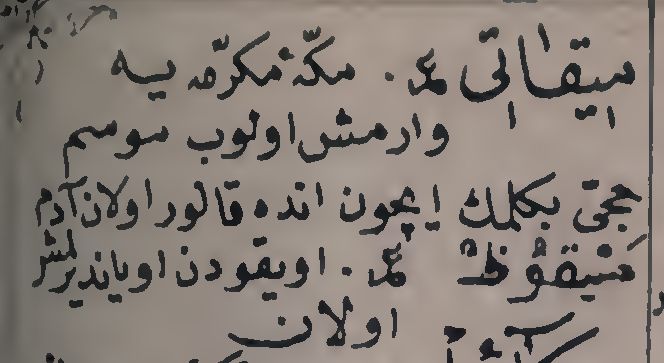 ميقاتى عر. مكّهٔ مكرّمه يه
وارمش اولوب موسم
حجّى بكلمك ايچون انده قالور اولان آدم
مُتَيَقِّوُظْ عر. اويقودن اوياندیرلمش
اولان